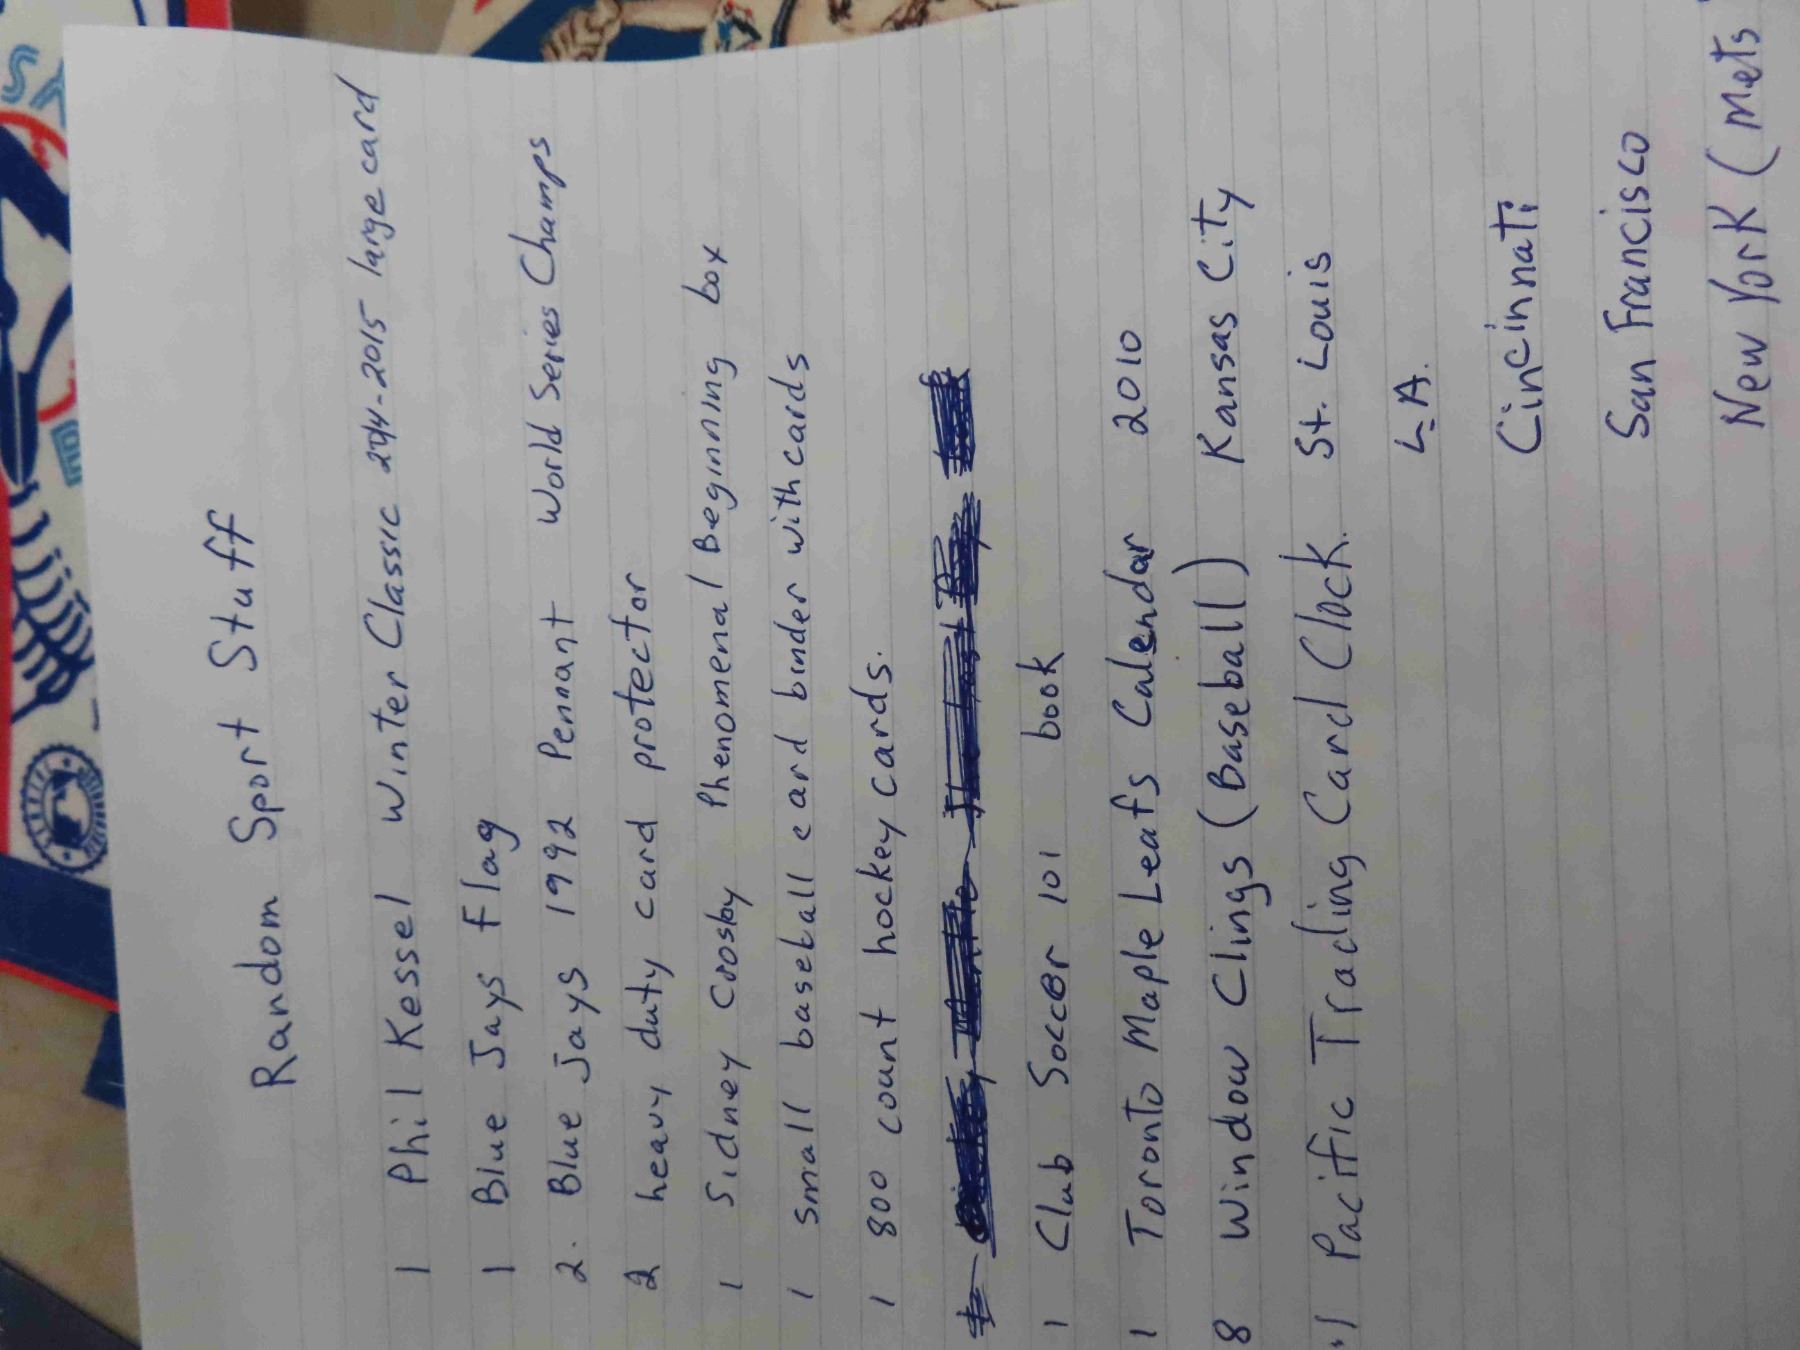 Random Sport Stuff
1 Phil Kessel Winter Classic 2014-2015 large card
1 Blue Jays Flag
2. Blue Jays 1992 Pennant World Series Champs
2 heavy duty card protector
1 Sidney Crosby Phenomenal Beginning box
1 small baseball card binder with cards
1 800 count hockey cards.
1 Club Soccer 101 book
1 Toronto Maple Leafs Calendar 2010
8 Window Clings (Baseball) Kansas City
1 Pacific Trading Card Clock. St. Louis
L.A.
Cincinnati
San Francisco
New York (Mets